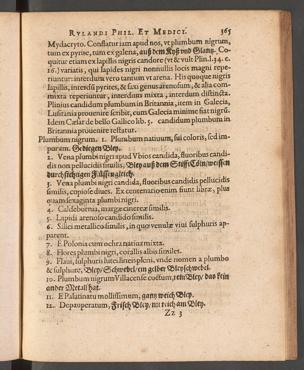 RVLANDI PHIL. ET MEDICI. 365
Mydacryto. Conflatur iam apud nos, vt plumbum nigrum,
tum ex pyrite, tum ex galena, auß dem Kyß vnd Glantz. Co-
quitur etiam ex lapillis nigris candore (vt & vult Plin. l. 34. c.
16.) variatis, qui lapides nigri nonnullis locis magni repe-
riuntur: interdum vero tantum vt arena. His quoque nigris
lapillis, interdū pyrites, & suū genus arenosum, & alia com-
mixta reperiuntur, interdum mixta, interdum distincta.
Plinius candidum plumbum in Britannia, item in Galecia,
Lusitania prouenire scribit, cum Galecia minime fiat nigrū.
Idem Cæsar de bello Gallico lib. 5. candidum plumbum in
Britannia prouenire testatur.
Plumbum nigrum. 1. Plumbum natiuum, sui coloris, sed im-
purum. Gediegen Bley.
2. Vena plumbi nigri apud Vbios candida, fluoribus candi-
dis non pellucidis similis, Bley auß dem Stifft Cöln/weissen
durchsichtigen Flüssen gleich.
3. Vena plumbi nigri candida, fluoribus candidis pellucidis
similis, copiose diues. Ex centenario enim sunt libræ, plus
quam sexaginta plumbi nigri.
4. Caldebornia, margæ cinereæ similis.
5. Lapidi arenoso candido similis.
6. Silici metallico similis, in quo venulæ viui sulphuris ap-
parent.
7. E Polonia cum ochra natiua mixta.
8. Flores plumbi nigri, corallis albis similes.
9. Flaui, sulphuris lutei lineis pleni, vnde nomen a plumbo
& sulphure, Bley/Schwebel/ein gelber Bleyschwebel.
10. Plumbum nigrum Villacense coctum, rein Bley/das kein
ander Metall hat.
11. E Palatinatu mollissimum, gantz weich Bley.
12. Depauperatum, Frisch Bley, nit reich am Bley.
Zz 3